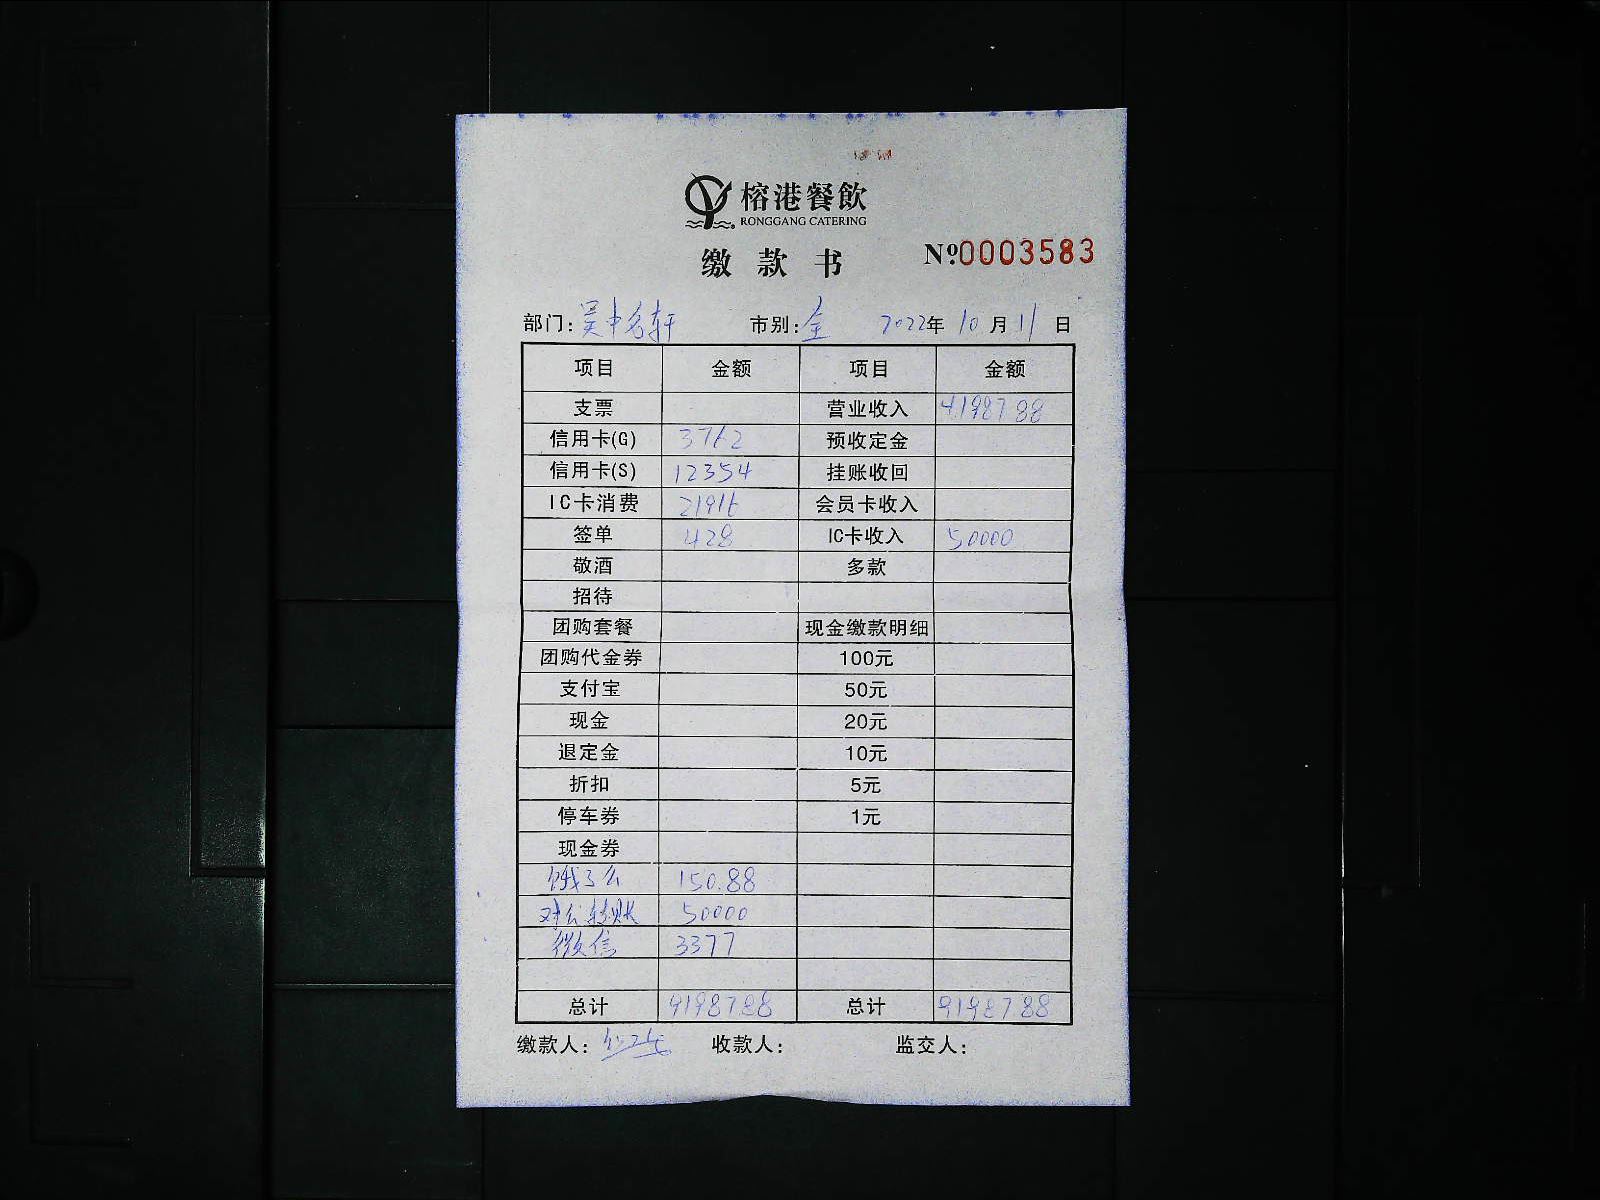 榕港餐飲
RONGGANG CATERING
缴款书 №0003583
部门：吴中名轩 市别：全 2022年10月11日
项目 金额 项目 金额
支票 营业收入 41987.88
信用卡(G) 3762 预收定金
信用卡(S) 12354 挂账收回
IC卡消费 21916 会员卡收入
签单 428 IC卡收入 50000
敬酒 多款
招待
团购套餐 现金缴款明细
团购代金券 100元
支付宝 50元
现金 20元
退定金 10元
折扣 5元
停车券 1元
现金券
饿了么 150.88
对公转账 50000
微信 3377
总计 91987.88 总计 91987.88
缴款人： 收款人： 监交人：